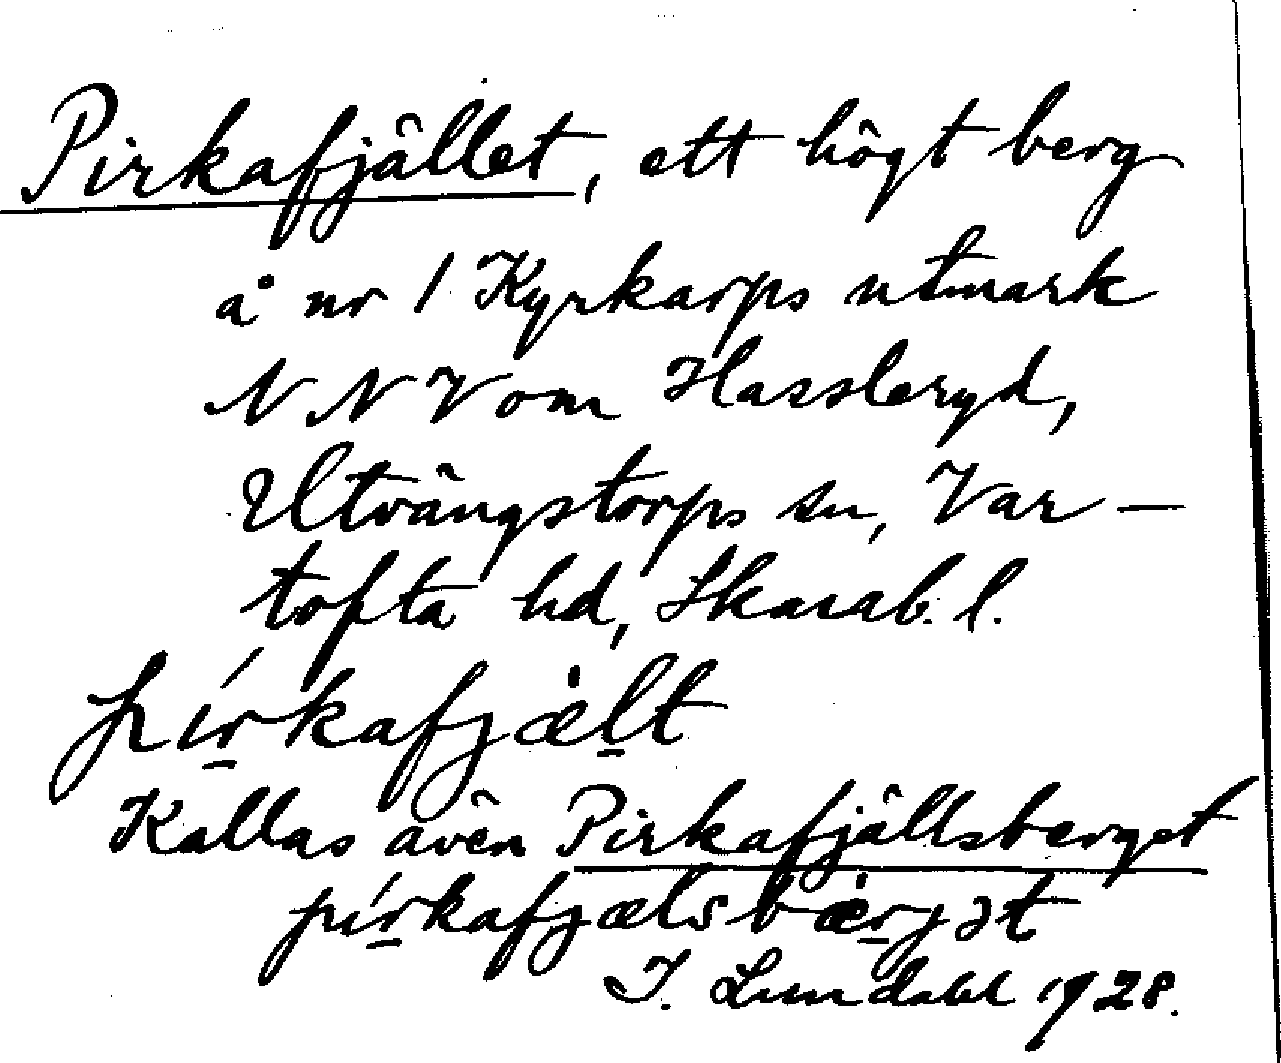 Pirkafjället, ett högt berg
å nr 1 Kyrkarps utmark
NNV om Hassleryd,
Utvängstorps sn, Var-
tofta hd, Skarab. l.
pírkafjæ̀lt
Kallas även Pirkafjällsberget
pírkafjælsbæ̀rjət
I. Lundahl 1928.